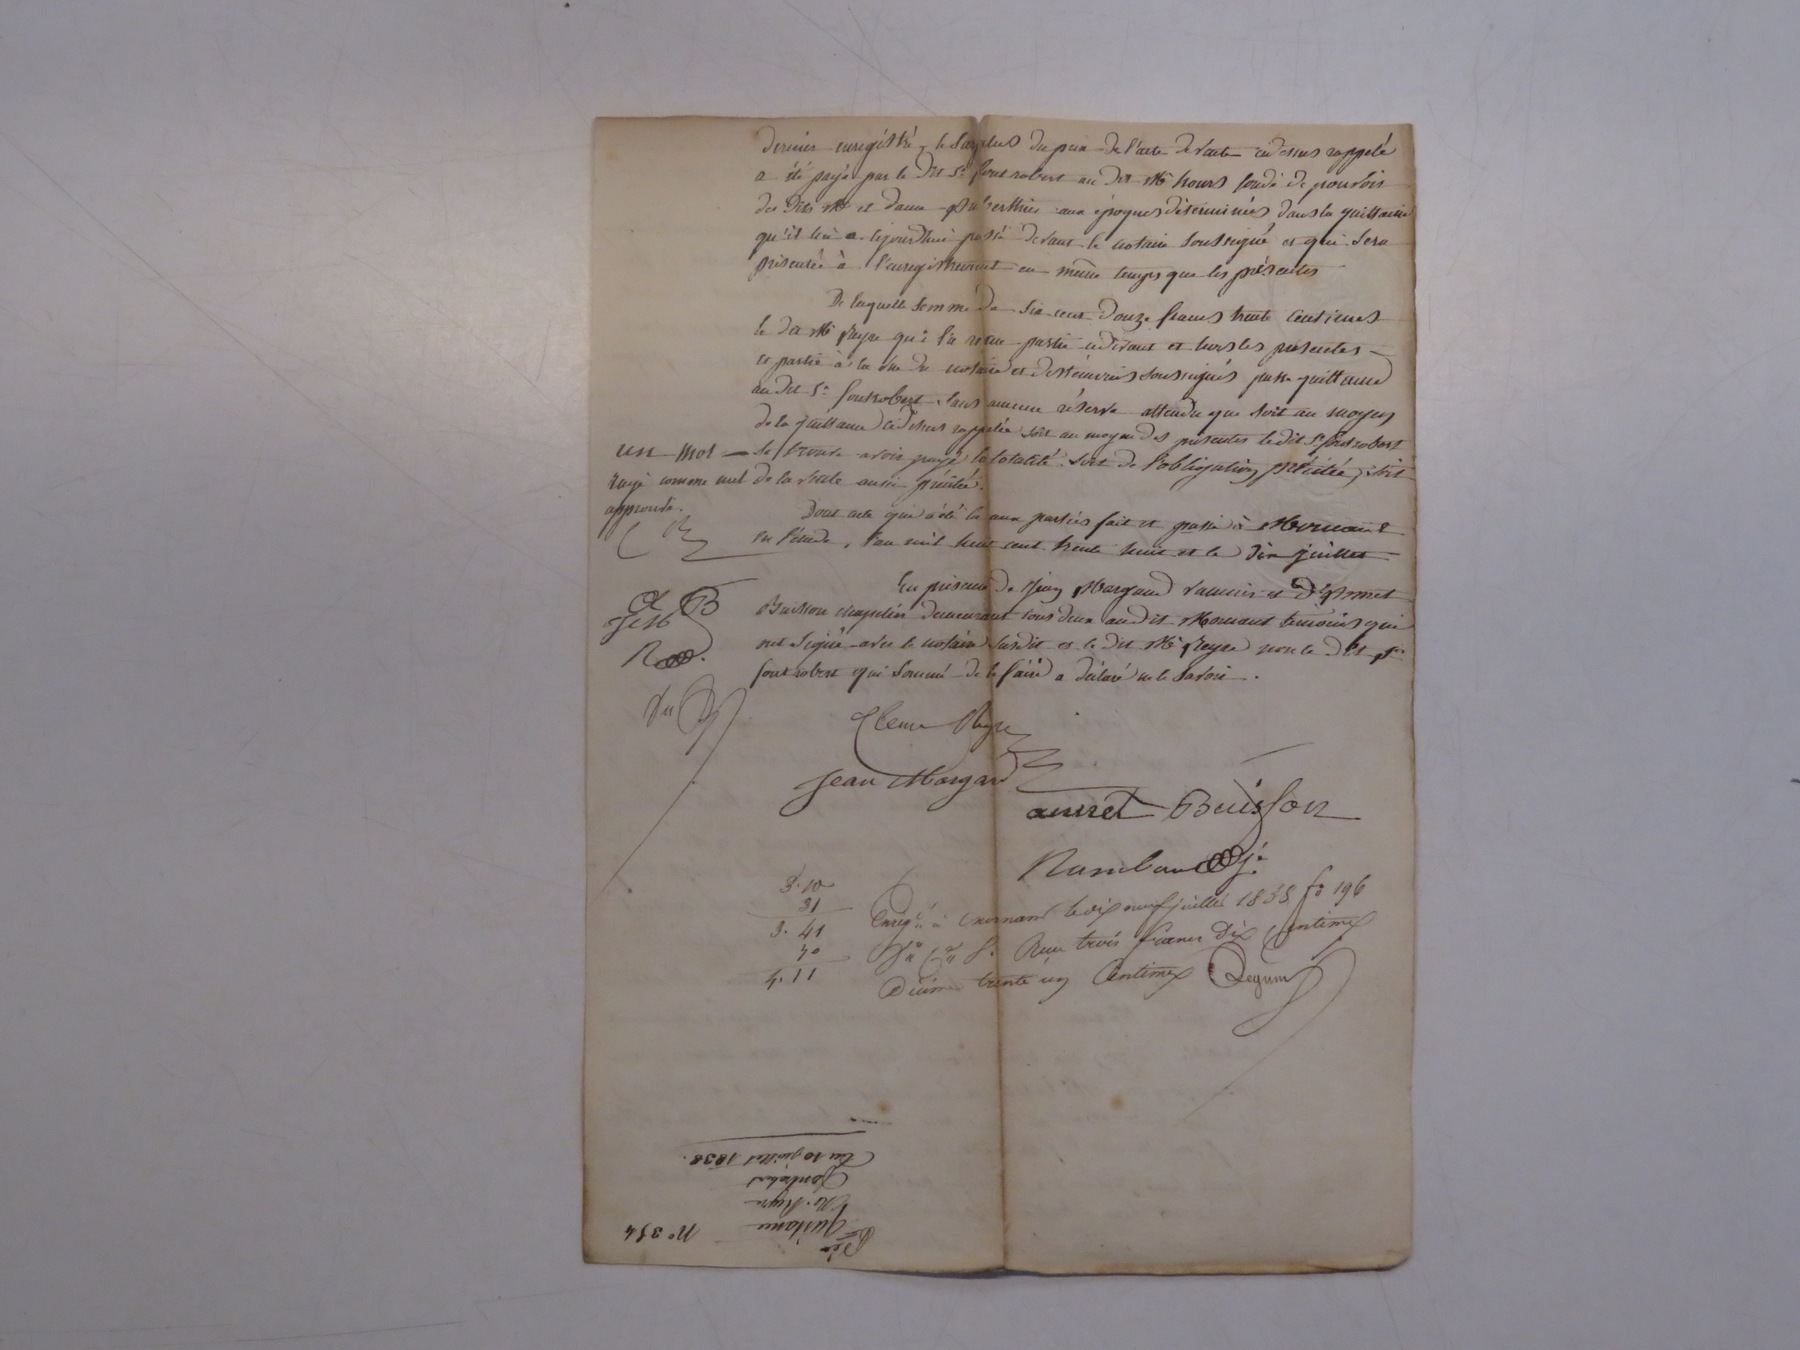 dernier enregistré, le surplus du prix de l'acte de vente ci dessus rappelé
a été payé par le dit Sr. fontrobert au dit Mr hours fondé de pouvoir
des dits Mr et dame aux époques déterminées dans la quittance
qu'il lui a cejourd'hui passé devant le notaire soussigné et qui sera
présentée à l'enregistrement en même temps que les présentes
De laquelle somme de six cent douze francs trente centimes
le dit Mr Reyre qui l'a reçue partie cidevant et lors des présentes
et partie à la vue du notaire et des témoins soussignés passe quittance
au dit Sr. fontrobert, sans aucune réserve attendu que soit au moyen
de la quittance ci dessus rappelée soit au moyen des présentes le dit Sr. fontrobert
se trouve avoir payé la totalité soit de l'obligation précitée, soit
de la vente aussi précitée.
un mot
rayé comme nul
approuvé.
Dont acte qui a été lu aux parties fait et passé à Mornant
en l'étude, l'an mil huit cent trente huit et le dix juillet
En présence de Jean Margand et de Annet
Buisson demeurant tous deux au dit Mornant témoins qui
ont signé avec le notaire susdit et le dit Mr Reyre non le dit Sr.
fontrobert qui sommé de le faire a déclaré ne le savoir.
Reyre
Jean Margand
annet Buisson
Rambaud
3. 10
31
3. 41
70
4. 11
Enregré à Mornant le dix neuf juillet 1838 fo 196
Reçu trois francs dix centimes
Décime trente un Centimes
No 354
Quittance
Mr. Reyre
fontrobert
Du 10 juillet 1838.